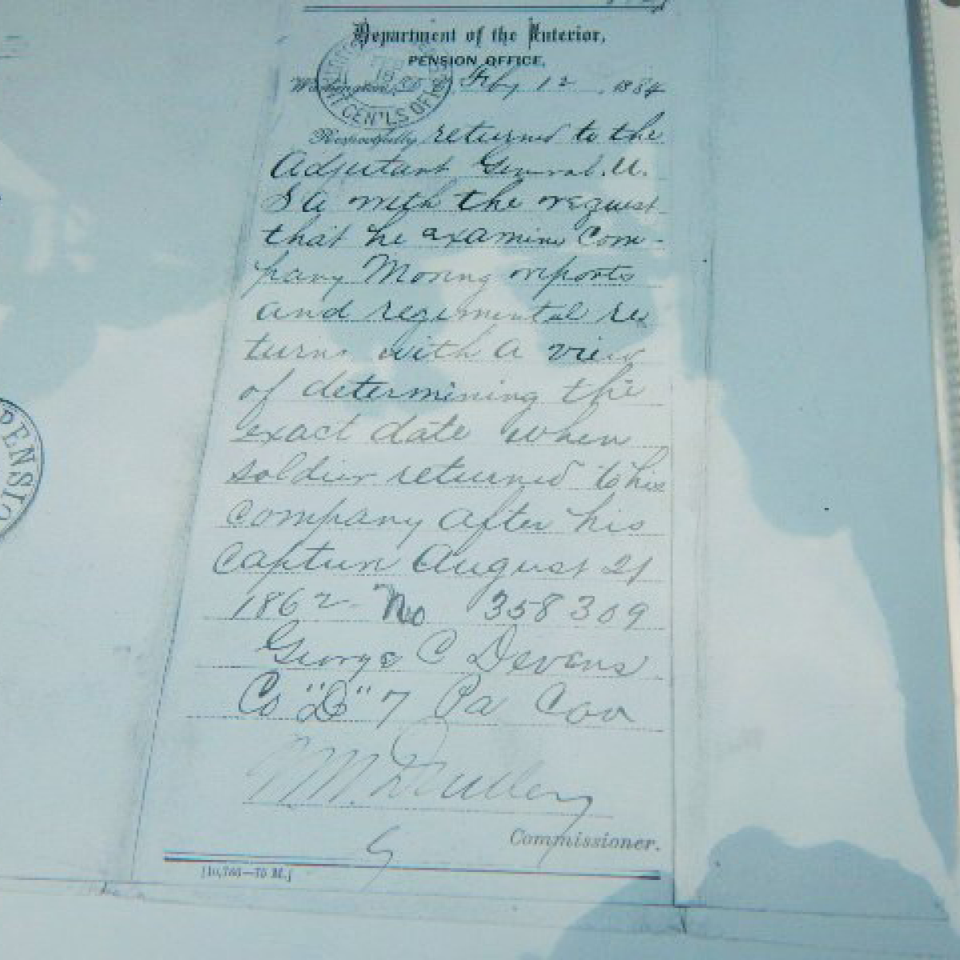 Department of the Interior,
PENSION OFFICE,
Washington, D. C., Feby 12, 1884
Respectfully returned to the
Adjutant General. U.
S A with the request
that he examine Com-
pany Moring reports
and regimental re
turns with a view
of determining the
exact date when
soldier returned to his
company after his
capture August 21
1862 No 358309
George C Devens
Co "D" 7 Pa Cav
Commissioner.
G
[10,766—75 M.]
PENSIO